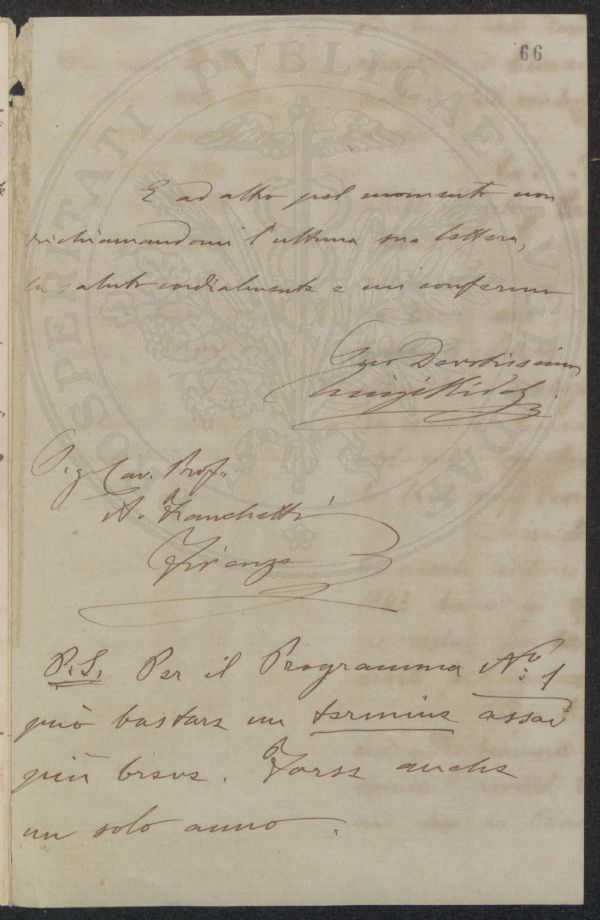 66
E ad altro pel momento non
richiamandomi l'ultima sua lettera,
la saluto cordialmente e mi confermo
Suo Devotissimo
Luigi
Sig. Cav. Prof.
A. Franchetti
Firenze
P.S. Per il Programma No. 1
può bastare un termine assai
più breve. Forse anche
un solo anno.
PROSPERITATI PVBLICAE